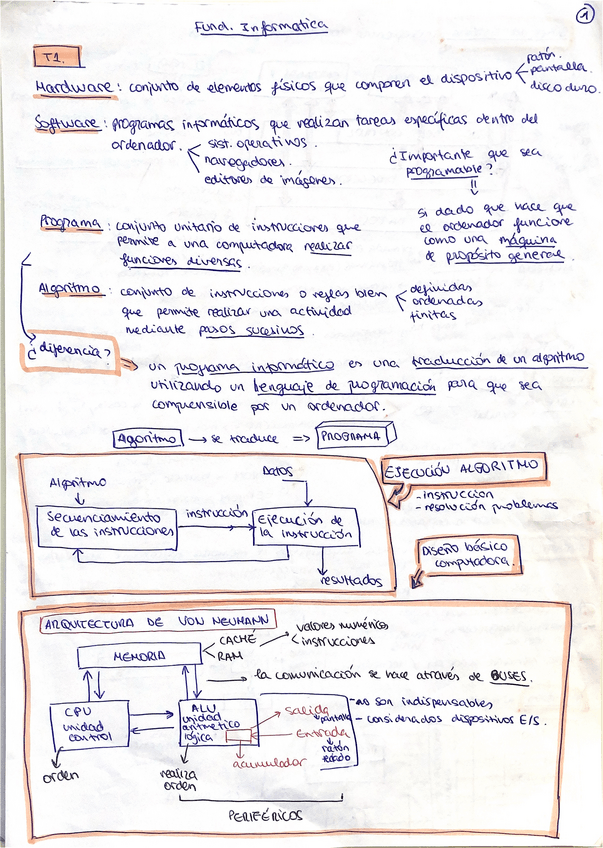 1
Fund. Informatica
T1.
Hardware: conjunto de elementos físicos que componen el dispositivo
ratón.
pantalla.
disco duro.
Software: programas informáticos, que realizan tareas específicas dentro del
ordenador.
sist. operativos.
navegadores.
editores de imágenes.
¿Importante que sea
programable?
si dado que hace que
el ordenador funcione
como una máquina
de propósito general.
Programa: conjunto unitario de instrucciones que
permite a una computadora realizar
funciones diversas.
Algoritmo: conjunto de instrucciones o reglas bien
definidas
ordenadas
finitas
que permite realizar una actividad
mediante pasos sucesivos.
¿diferencia?
un programa informático es una traducción de un algoritmo
utilizando un lenguaje de programación para que sea
comprensible por un ordenador.
Algoritmo → se traduce => PROGRAMA
EJECUCIÓN ALGORITMO
- instrucción
- resolución problemas
Algoritmo
Datos
Secuenciamiento
de las instrucciones
instrucción
Ejecución de
la instrucción
resultados
Diseño básico
computadora.
ARQUITECTURA DE VON NEUMANN
MEMORIA
CACHÉ
RAM
valores numéricos
instrucciones
la comunicación se hace através de BUSES.
CPU
unidad
control
orden
ALU
unidad
aritmético
lógica
realiza
orden
acumulador
Salida
pantalla
Entrada
ratón
teclado
- no son indispensables
- considerados dispositivos E/S.
PERIFÉRICOS